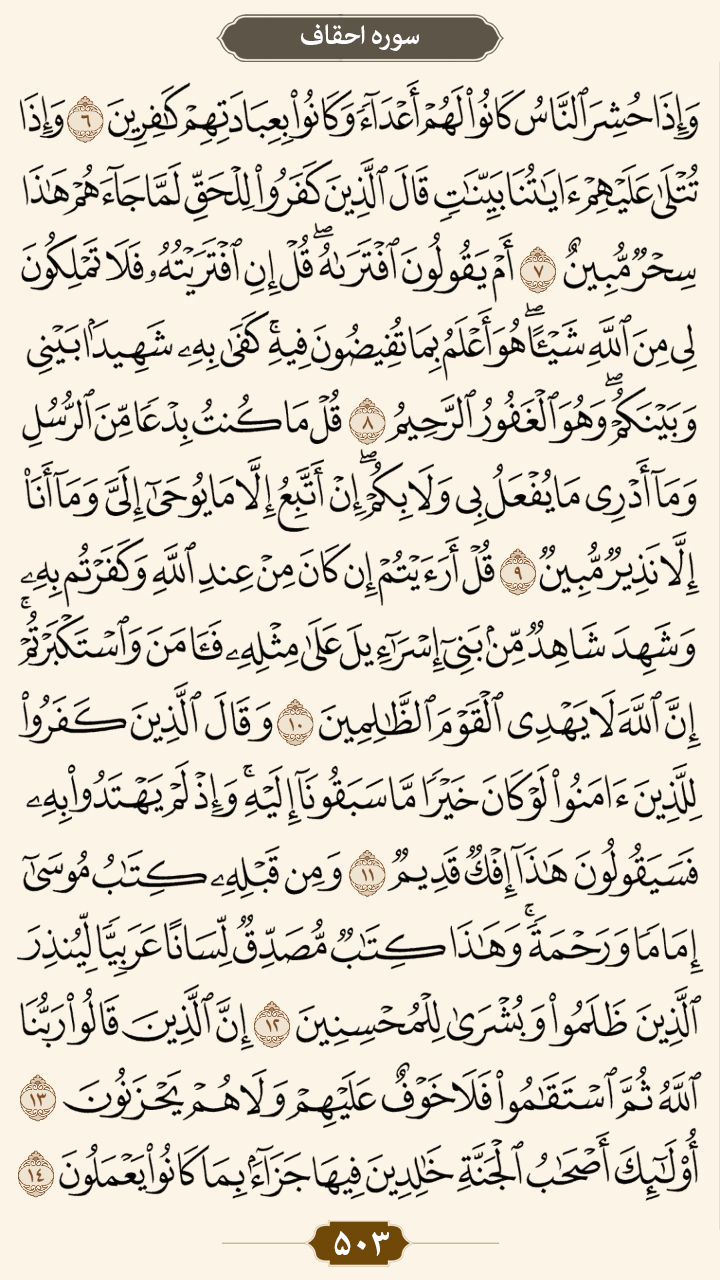 سوره احقاف
وَإِذَا حُشِرَ ٱلنَّاسُ كَانُوا۟ لَهُمْ أَعْدَآءً وَكَانُوا۟ بِعِبَادَتِهِمْ كَـٰفِرِينَ ٦ وَإِذَا
تُتْلَىٰ عَلَيْهِمْ ءَايَـٰتُنَا بَيِّنَـٰتٍ قَالَ ٱلَّذِينَ كَفَرُوا۟ لِلْحَقِّ لَمَّا جَآءَهُمْ هَـٰذَا
سِحْرٌ مُّبِينٌ ٧ أَمْ يَقُولُونَ ٱفْتَرَىٰهُ ۖ قُلْ إِنِ ٱفْتَرَيْتُهُۥ فَلَا تَمْلِكُونَ
لِى مِنَ ٱللَّهِ شَيْـًٔا ۖ هُوَ أَعْلَمُ بِمَا تُفِيضُونَ فِيهِ ۚ كَفَىٰ بِهِۦ شَهِيدًۢا بَيْنِى
وَبَيْنَكُمْ ۖ وَهُوَ ٱلْغَفُورُ ٱلرَّحِيمُ ٨ قُلْ مَا كُنتُ بِدْعًا مِّنَ ٱلرُّسُلِ
وَمَآ أَدْرِى مَا يُفْعَلُ بِى وَلَا بِكُمْ ۖ إِنْ أَتَّبِعُ إِلَّا مَا يُوحَىٰٓ إِلَىَّ وَمَآ أَنَا۠
إِلَّا نَذِيرٌ مُّبِينٌ ٩ قُلْ أَرَءَيْتُمْ إِن كَانَ مِنْ عِندِ ٱللَّهِ وَكَفَرْتُم بِهِۦ
وَشَهِدَ شَاهِدٌ مِّنۢ بَنِىٓ إِسْرَٰٓءِيلَ عَلَىٰ مِثْلِهِۦ فَـَٔامَنَ وَٱسْتَكْبَرْتُمْ ۚ
إِنَّ ٱللَّهَ لَا يَهْدِى ٱلْقَوْمَ ٱلظَّـٰلِمِينَ ١٠ وَقَالَ ٱلَّذِينَ كَفَرُوا۟
لِلَّذِينَ ءَامَنُوا۟ لَوْ كَانَ خَيْرًا مَّا سَبَقُونَآ إِلَيْهِ ۚ وَإِذْ لَمْ يَهْتَدُوا۟ بِهِۦ
فَسَيَقُولُونَ هَـٰذَآ إِفْكٌ قَدِيمٌ ١١ وَمِن قَبْلِهِۦ كِتَـٰبُ مُوسَىٰٓ
إِمَامًا وَرَحْمَةً ۚ وَهَـٰذَا كِتَـٰبٌ مُّصَدِّقٌ لِّسَانًا عَرَبِيًّا لِّيُنذِرَ
ٱلَّذِينَ ظَلَمُوا۟ وَبُشْرَىٰ لِلْمُحْسِنِينَ ١٢ إِنَّ ٱلَّذِينَ قَالُوا۟ رَبُّنَا
ٱللَّهُ ثُمَّ ٱسْتَقَـٰمُوا۟ فَلَا خَوْفٌ عَلَيْهِمْ وَلَا هُمْ يَحْزَنُونَ ١٣
أُو۟لَـٰٓئِكَ أَصْحَـٰبُ ٱلْجَنَّةِ خَـٰلِدِينَ فِيهَا جَزَآءًۢ بِمَا كَانُوا۟ يَعْمَلُونَ ١٤
۵۰۳